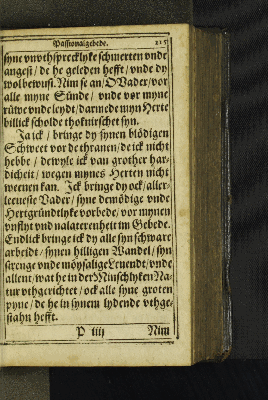 Passionalgebede. 115
syne vnvthsprecklyke schmerten vnde
angest / de he geleden hefft / vnde dy
wolbewust. Nim se an / O Vader / vor
alle myne Sünde / vnde vor myne
rüwe vnde leydt / darmede myn Herte
billick scholde thoknirschet syn.
Ja ick / bringe dy synen blödigen
Schweet vor de thranen / de ick nicht
hebbe / dewyle ick van grother har-
dicheit / wegen mynes Herten nicht
weenen kan. Ick bringe dy ock / aller-
leeueste Vader / syne demödige vnde
Hertgründtlyke vorbede / vor mynen
vnflyt vnd nalatenheit im Gebede.
Endlick bringe ick dy alle syn schware
arbeidt / synen hilligen Wandel / syn
strenge vnde möysalige Leuendt / vnde
allent / wat he in der Minschlyken Na-
tur vthgerichtet / ock alle syne groten
pyne / de he in synem lydende vthge-
stahn hefft.
P iiij Nim